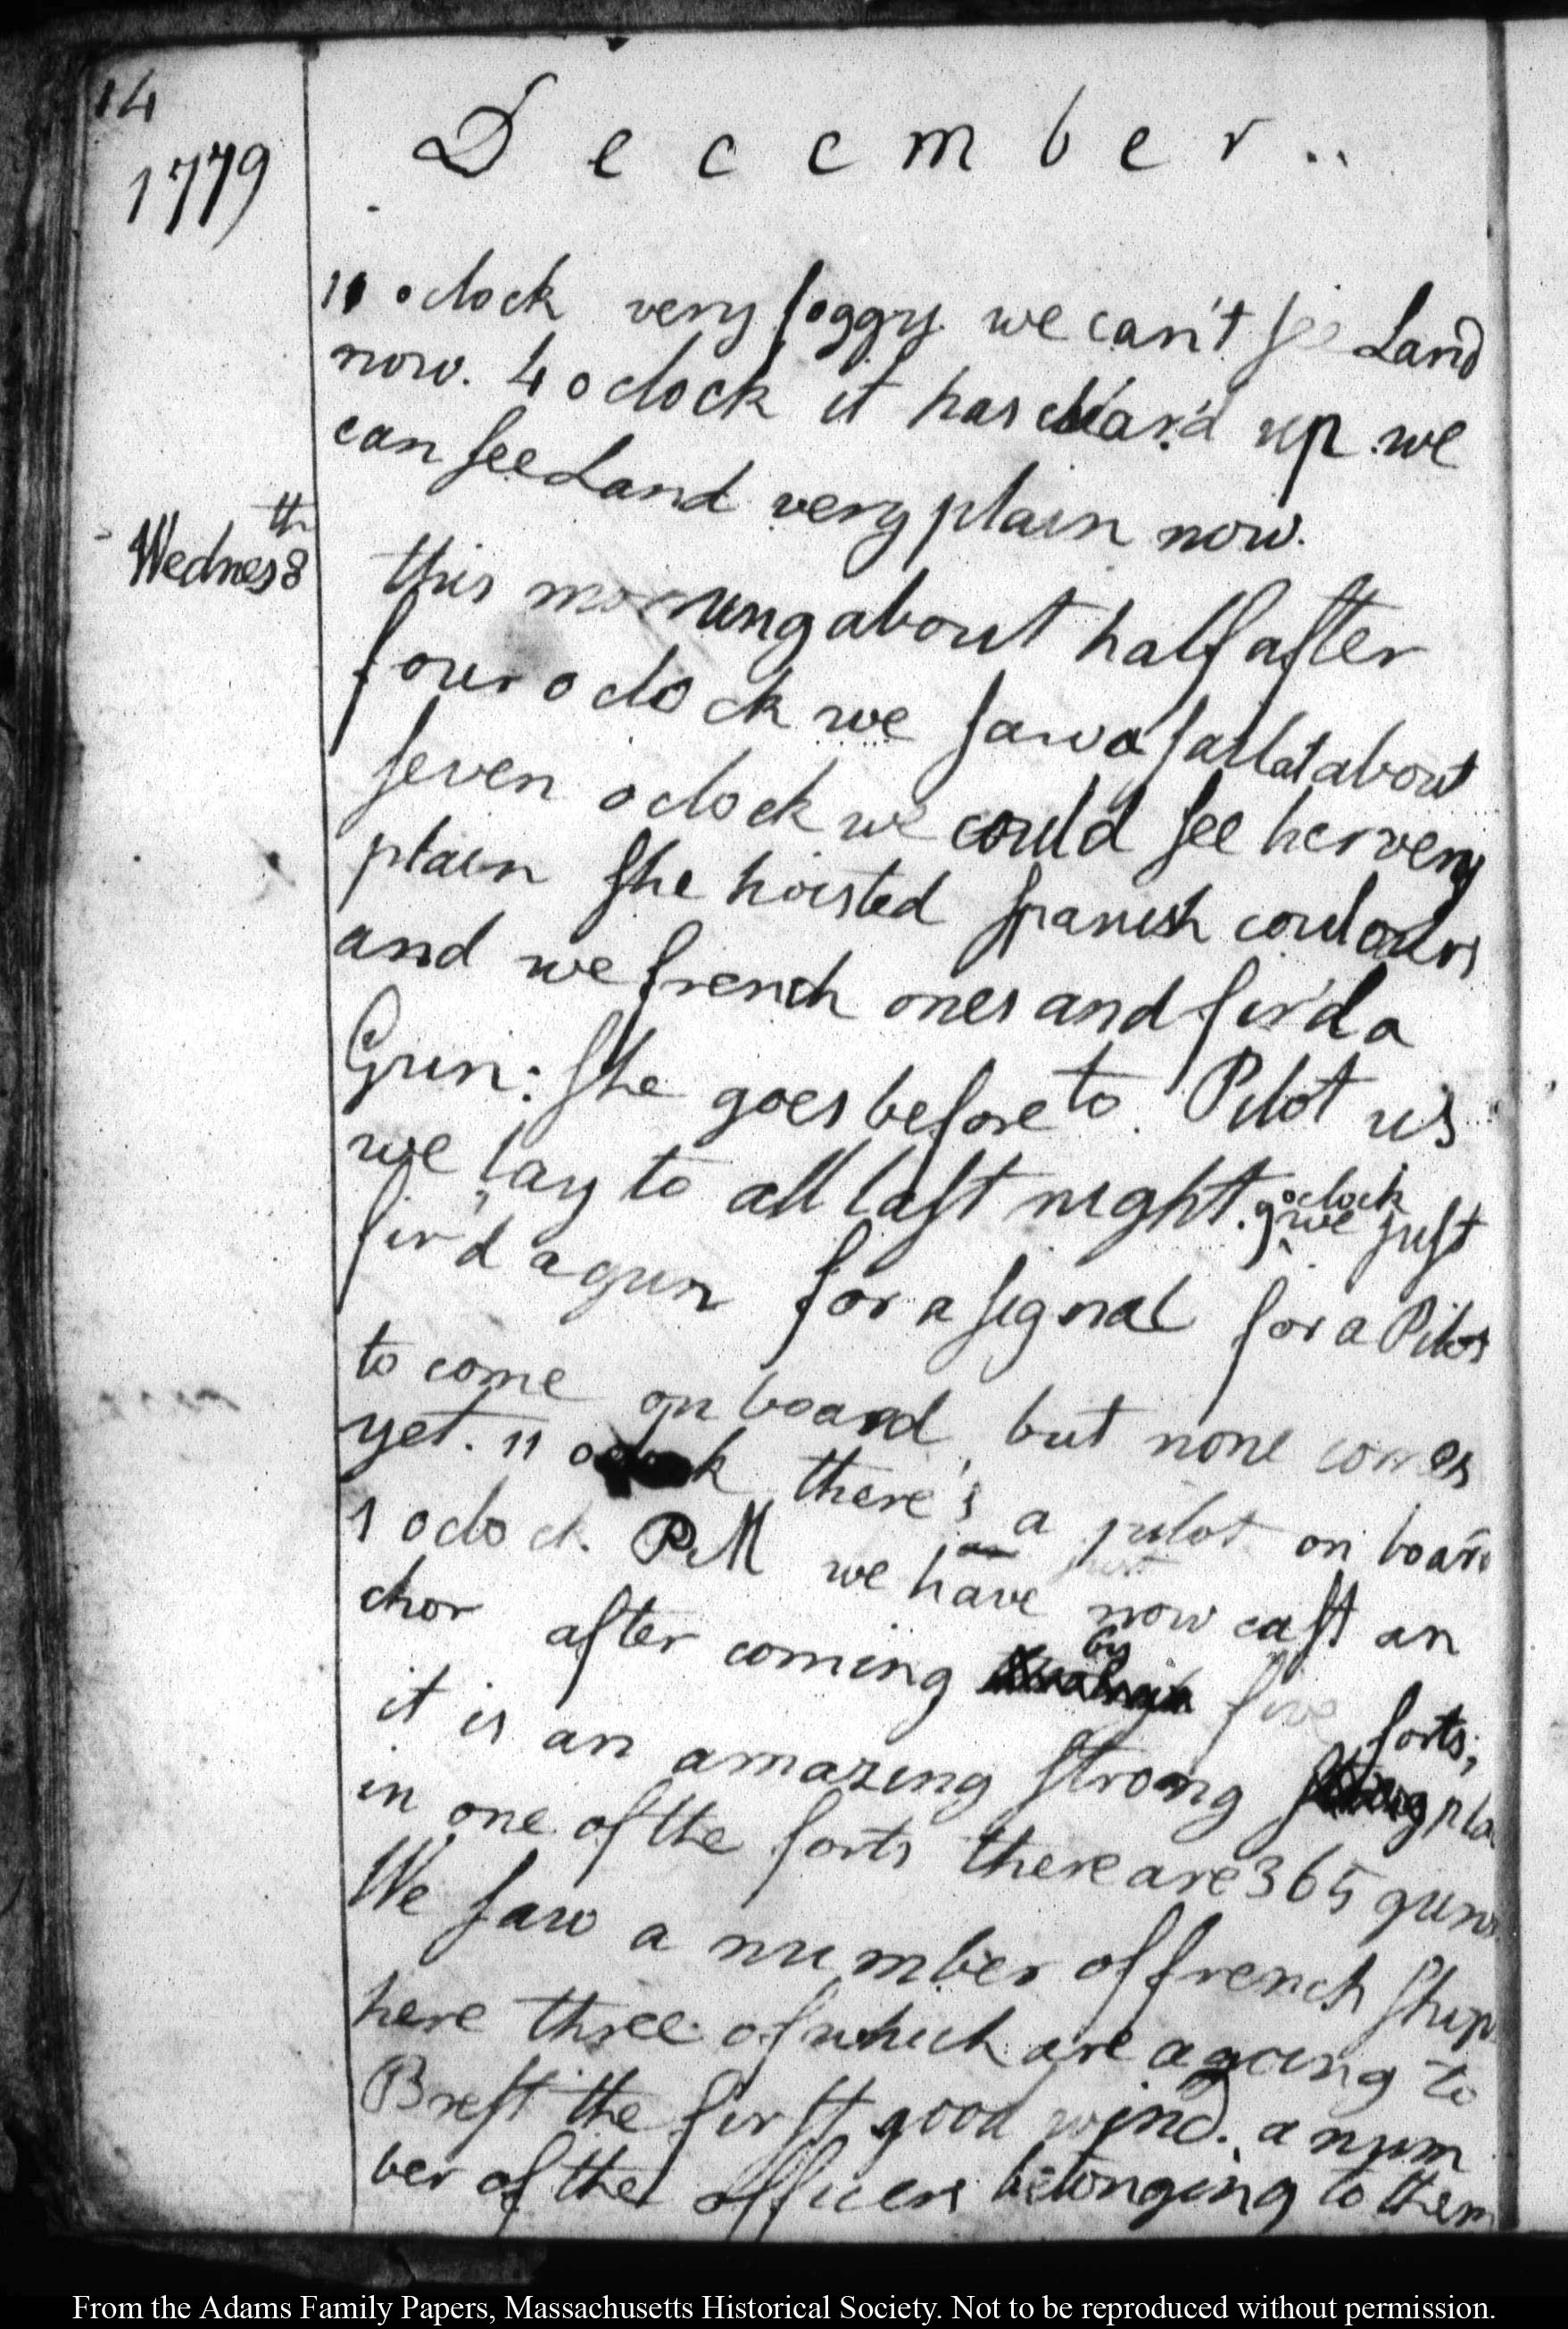 14
1779
December..
11 oclock very foggy we can't see Land
now. 4 oclock it has clear'd up we
can see Land very plain now.
Wednes 8th
this morning about half after
four oclock we saw a sail at about
seven oclock we could see her very
plain she hoisted spanish coulours
and we french ones and fir'd a
Gun: she goes before to Pilot us
we lay to all last night. 9 oclock we just
fir'd a gun for a signal for a Pilot
to come on board but none comes
yet. 11 oclock there's a pilot on board
1 oclock. PM we have now cast an
chor after coming by five forts;
it is an amazing strong pla
in one of the forts there are 365 guns
We saw a number of french ships
here three of which are agoing to
Brest the first good wind. a num
ber of the officers belonging to them
From the Adams Family Papers, Massachusetts Historical Society. Not to be reproduced without permission.